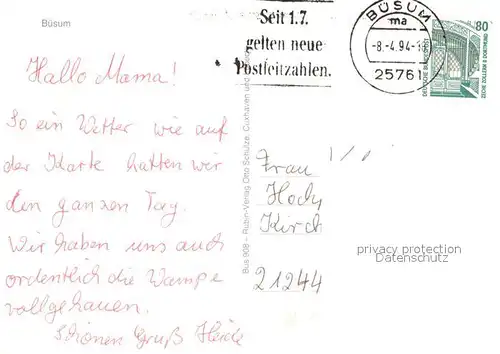 Büsum
Seit 1.7.
gelten neue
Postleitzahlen.
BÜSUM
ma
-8.-4.94-1
25761
80
DEUTSCHE BUNDESPOST
ZECHE ZOLLERN II DORTMUND
Hallo Mama!
So ein Wetter wie auf
der Karte hatten wir
den ganzen Tag.
Wir haben uns auch
ordentlich die Wampe
vollgehauen.
Schönen Gruß Heide
Büs 908 - Rubin-Verlag Otto Schulze, Cuxhaven und
Frau
Hoch
Kirch
21244
privacy protection
Datenschutz